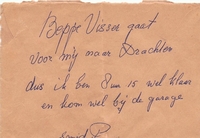 Beppe Visser gaat
voor mij naar Drachten
dus ik ben 8 uur 15 wel klaar
en kom wel bij de garage